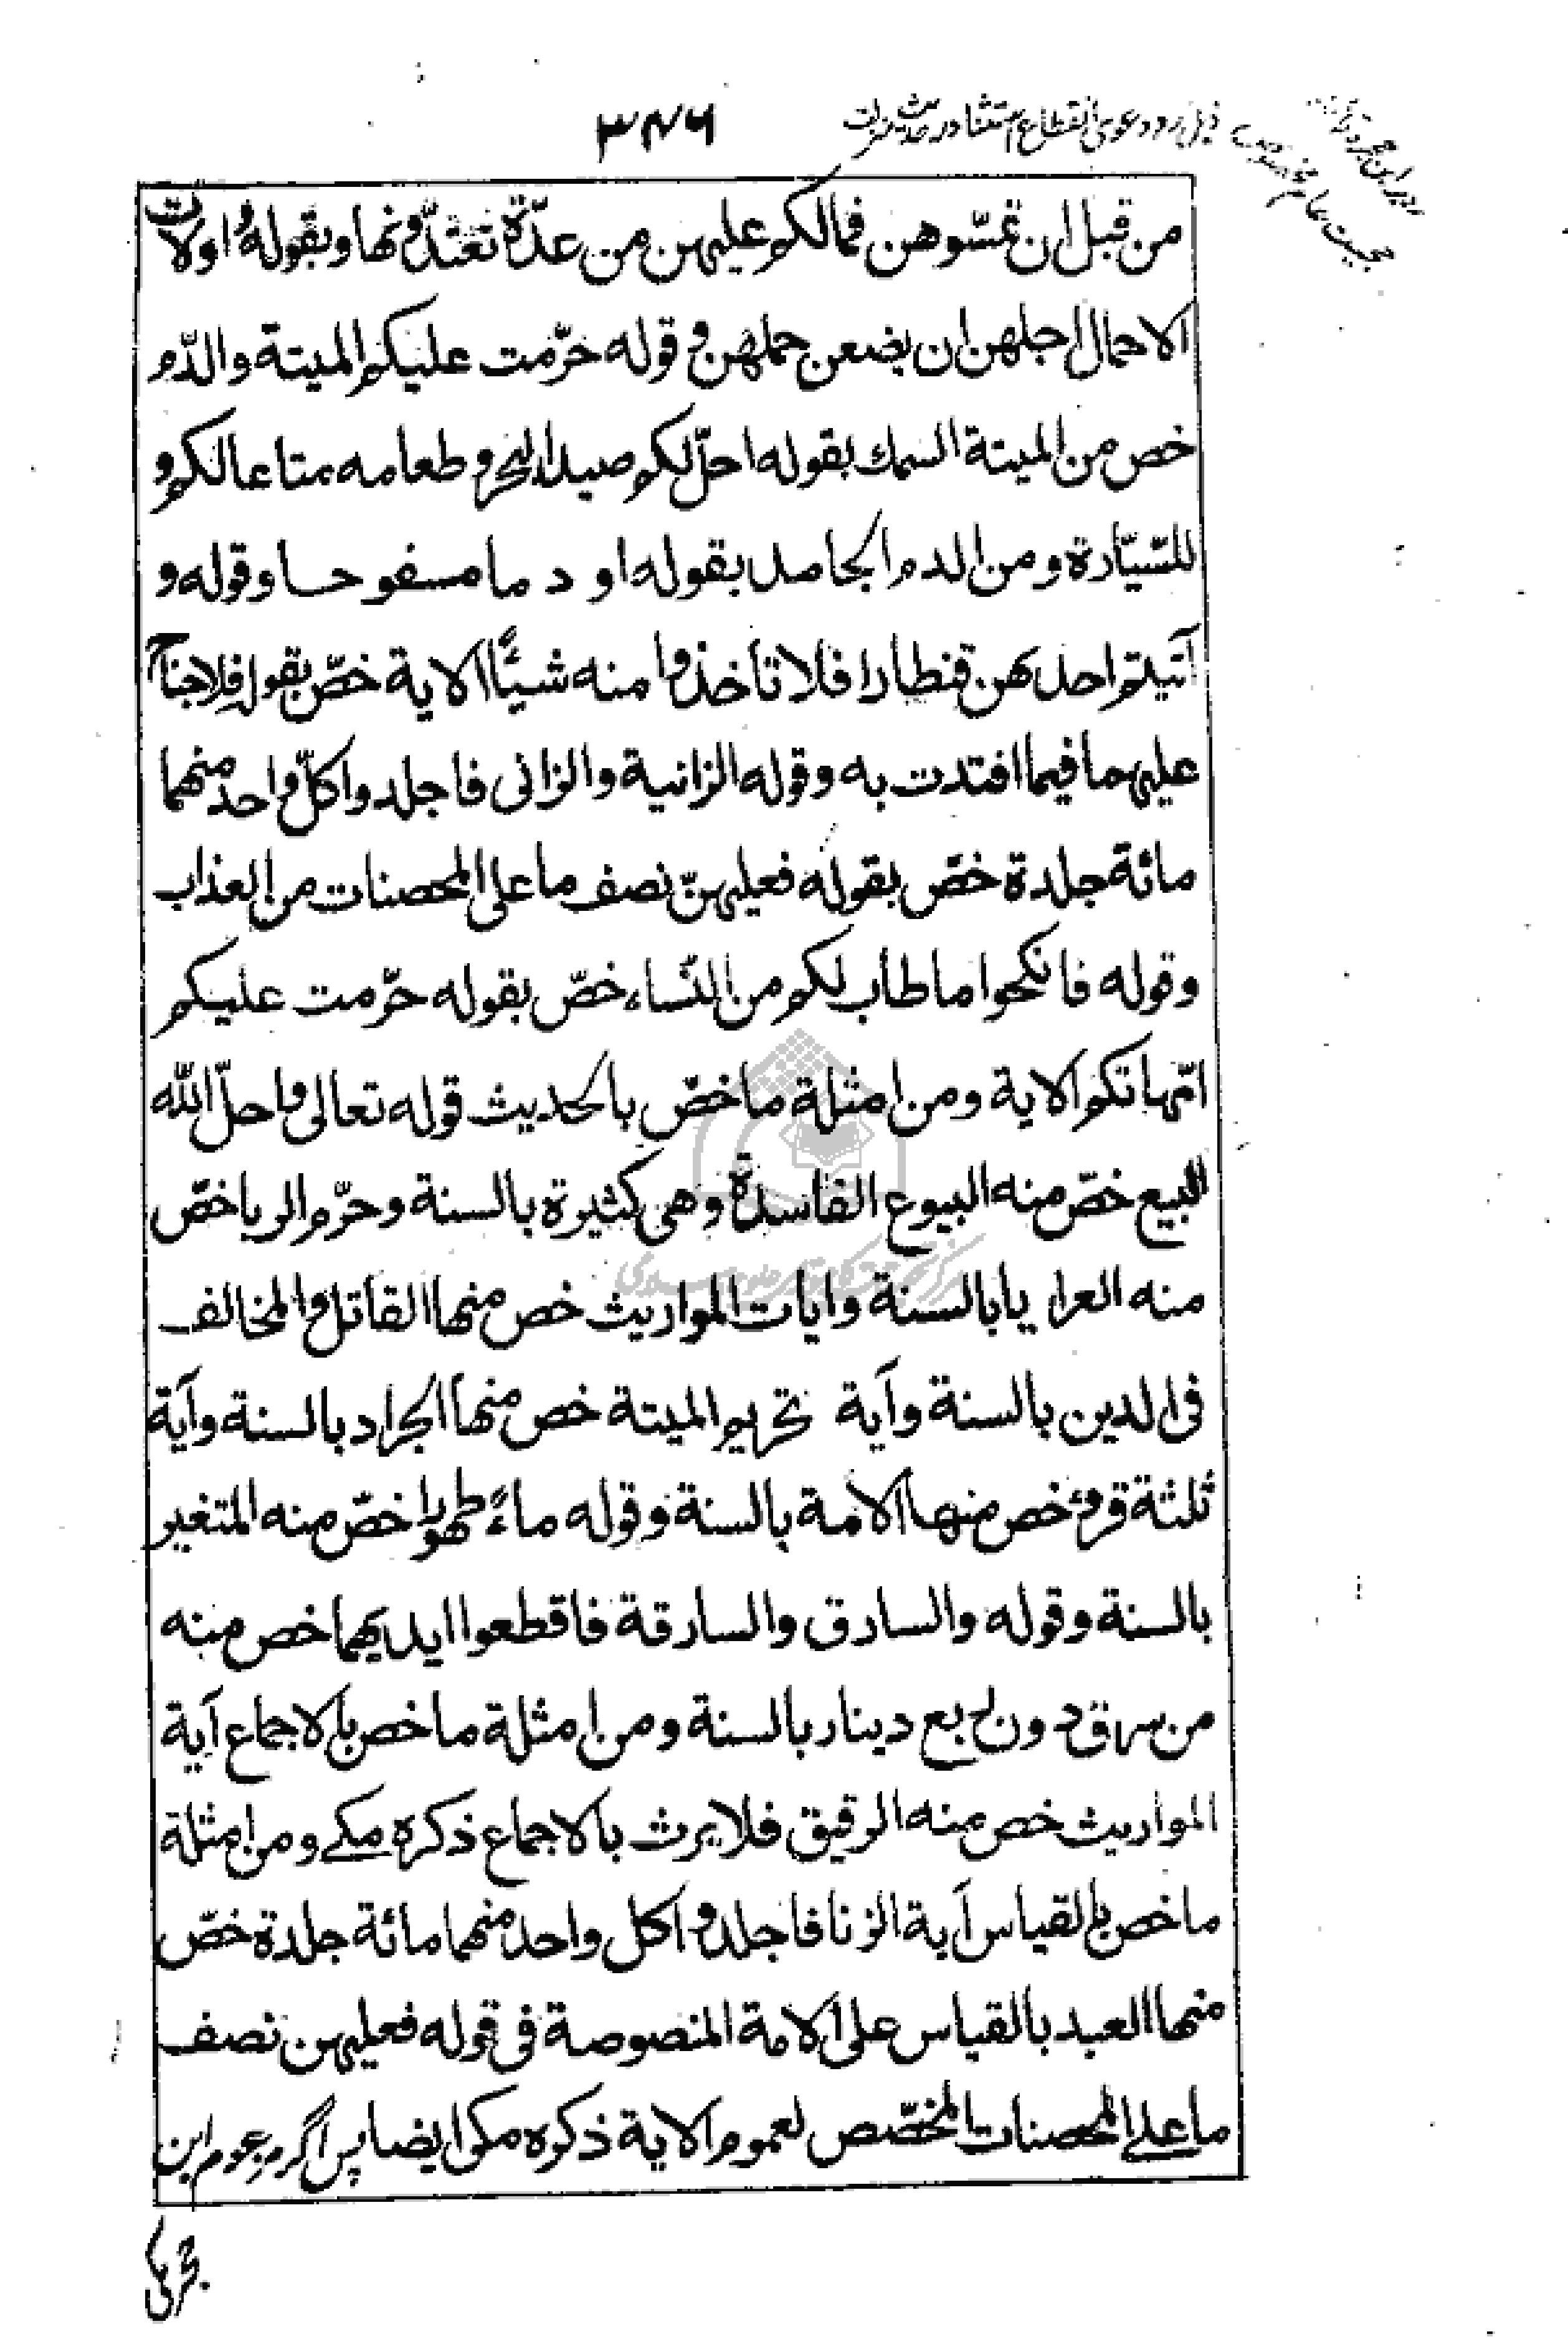 ۳۷۶
ذیل رد دعوی انقطاع استثنا در حدیث منزلت
من قبل ان تمسّوهن فمالكم عليهن من عدّة تعتدّونها وبقوله واولات
الاحمال اجلهن ان يضعن حملهن وقوله حرّمت عليكم الميتة والدّم
خص من الميتة السمك بقوله احلّ لكم صيد البحر وطعامه متاعا لكم و
للسّيّارة ومن الدم الجامد بقوله او د ما مسفو حا وقوله و
آتيتم احديهن قنطارا فلا تأخذوا منه شيئًا الاية خصّ بقوله فلا جناح
عليهما فيما افتدت به وقوله الزانية والزانى فاجلدوا كلّ واحد منهما
مائة جلدة خصّ بقوله فعليهنّ نصف ما على المحصنات من العذاب
وقوله فانكحوا ما طاب لكم من النّساء خصّ بقوله حرّمت عليكم
امّهاتكم الاية ومن امثلة ما خصّ بالحديث قوله تعالى واحلّ الله
البيع خصّ منه البيوع الفاسدة وهى كثيرة بالسنة وحرّم الربا خصّ
منه العرايا بالسنة وايات المواريث خص منها القاتل والمخالف
فى الدين بالسنة وآية تحريم الميتة خص منها الجراد بالسنة وآية
ثلثة قروء خص منها الامة بالسنة وقوله ماءً طهورا خصّ منه المتغير
بالسنة وقوله والسارق والسارقة فاقطعوا ايديهما خص منه
من سرق دون ربع دينار بالسنة ومن امثلة ما خص بالاجماع آية
المواريث خص منه الرقيق فلا يرث بالاجماع ذكره مكے ومن امثلة
ما خص بالقياس آية الزنا فاجلدوا كل واحد منهما مائة جلدة خصّ
منها العبد بالقياس على الامة المنصوصة فى قوله فعليهن نصف
ما علے المحصنات المخصّص لعموم الاية ذكره مكى ايضا پس اگر مزعوم ابن
حجر مکی